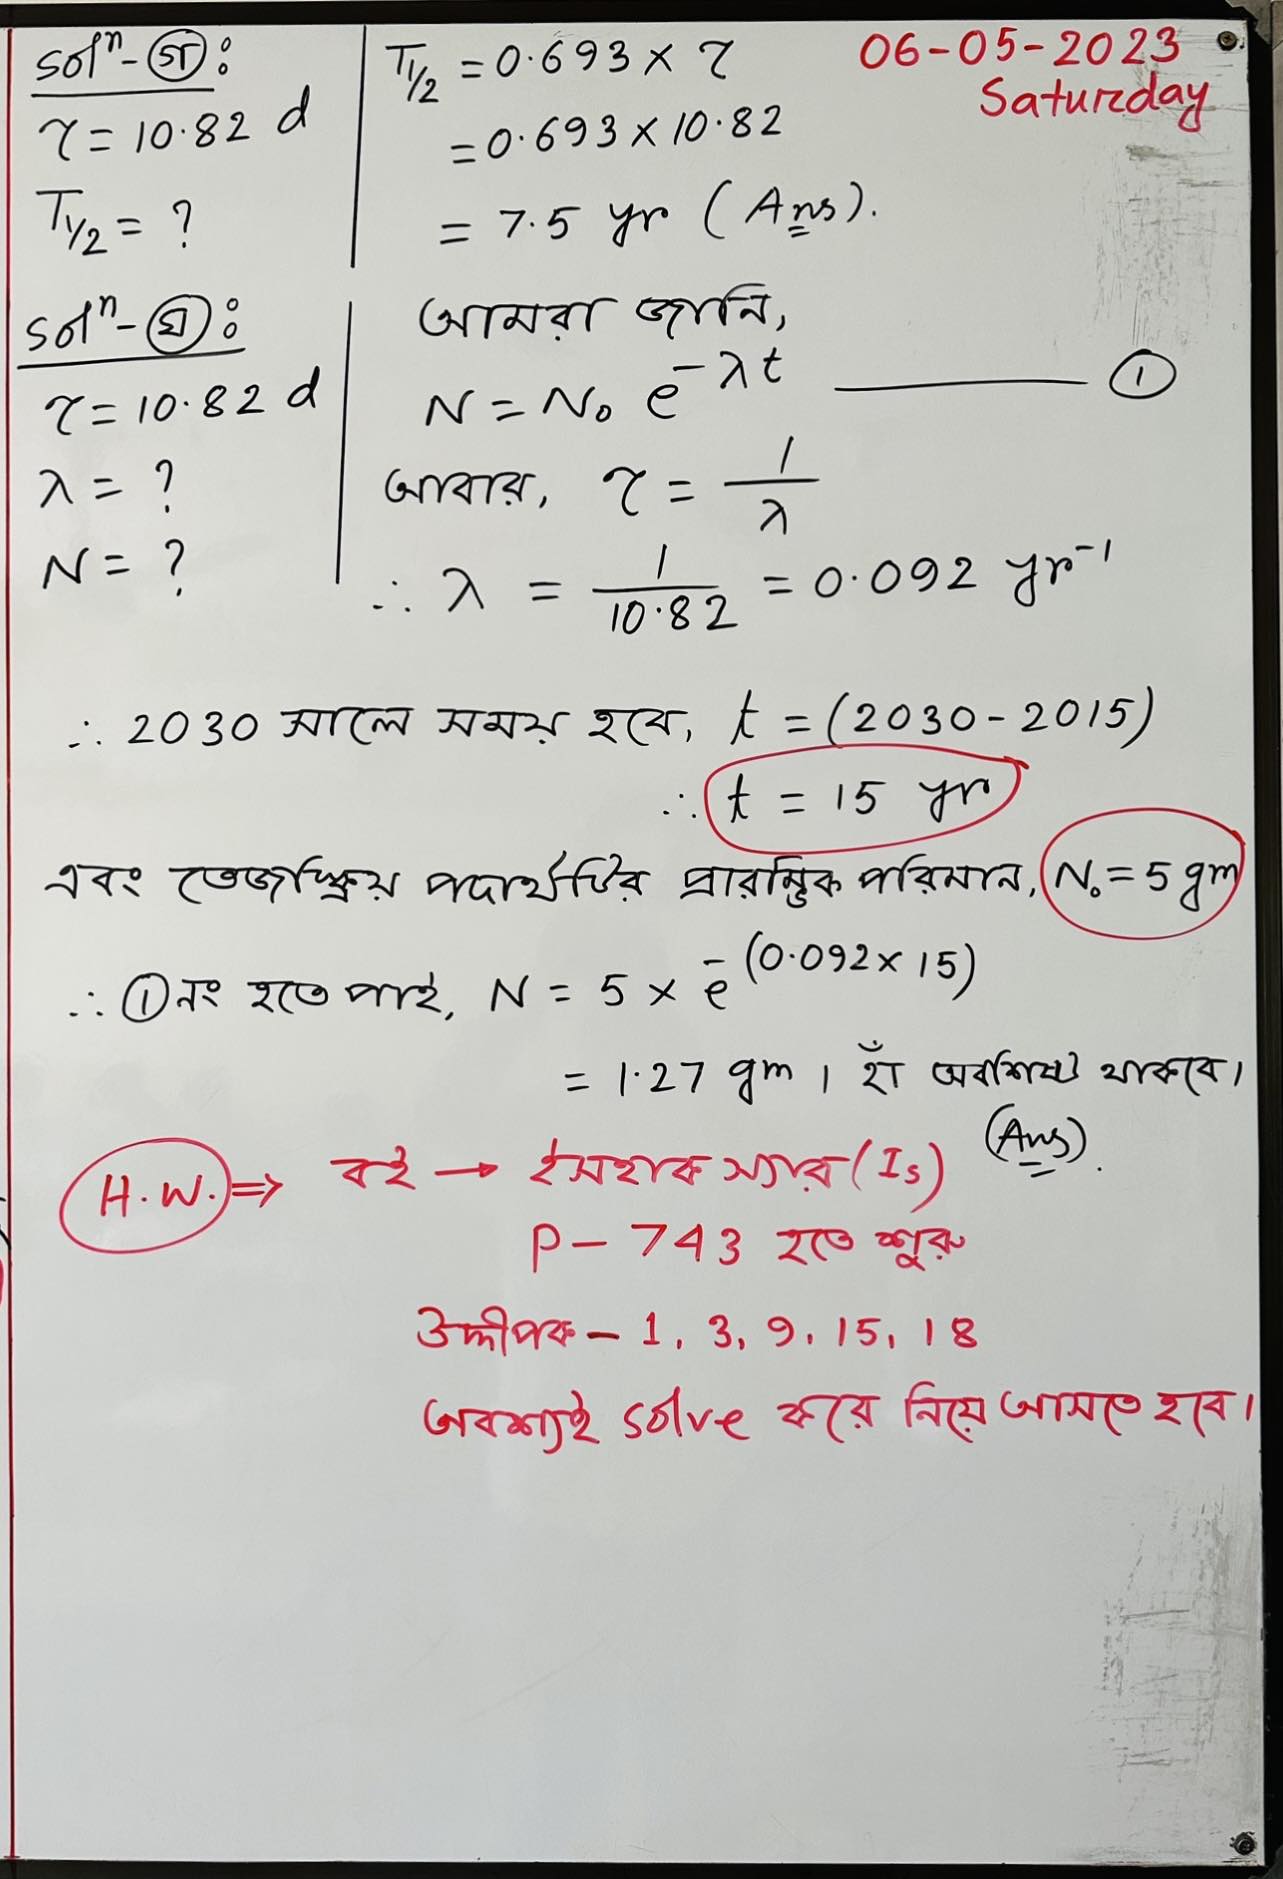 06-05-2023
Saturday
solⁿ-(গ):
τ = 10.82 d
T½ = ?
T½ = 0.693 × τ
= 0.693 × 10.82
= 7.5 yr (Ans).
solⁿ-(ঘ):
τ = 10.82 d
λ = ?
N = ?
আমরা জানি,
N = N₀ e^-λt ——— (1)
আবার, τ = 1/λ
∴ λ = 1/10.82 = 0.092 yr⁻¹
∴ 2030 সালে সময় হবে, t = (2030-2015)
∴ t = 15 yr
এবং তেজস্ক্রিয় পদার্থটির প্রারম্ভিক পরিমান, N₀ = 5 gm
∴ (1) নং হতে পাই, N = 5 × e^-(0.092×15)
= 1.27 gm। হ্যাঁ অবশিষ্ট থাকবে।
(Ans).
H.W. ⇒ বই → ইসহাক স্যার (Is)
P - 743 হতে শুরু
উদ্দীপক - 1, 3, 9, 15, 18
অবশ্যই solve করে নিয়ে আসতে হবে।